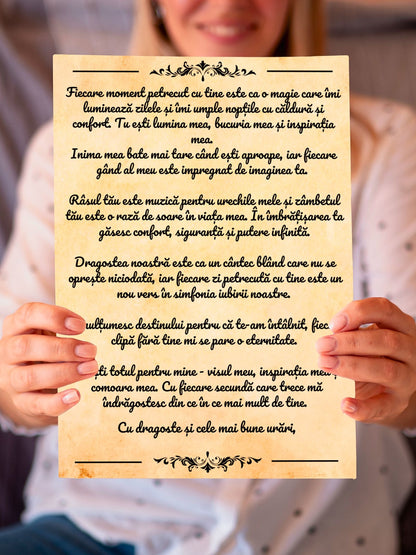 Fiecare moment petrecut cu tine este ca o magie care îmi
luminează zilele și îmi umple nopțile cu căldură și
confort. Tu ești lumina mea, bucuria mea și inspirația
mea.
Inima mea bate mai tare când ești aproape, iar fiecare
gând al meu este impregnat de imaginea ta.
Râsul tău este muzică pentru urechile mele și zâmbetul
tău este o rază de soare în viața mea. În îmbrățișarea ta
găsesc confort, siguranță și putere infinită.
Dragostea noastră este ca un cântec blând care nu se
oprește niciodată, iar fiecare zi petrecută cu tine este un
nou vers în simfonia iubirii noastre.
ulțumesc destinului pentru că te-am întâlnit, fiec
clipă fără tine mi se pare o eternitate.
ști totul pentru mine - visul meu, inspirația mea ș
comoara mea. Cu fiecare secundă care trece mă
îndrăgostesc din ce în ce mai mult de tine.
Cu dragoste și cele mai bune urări,